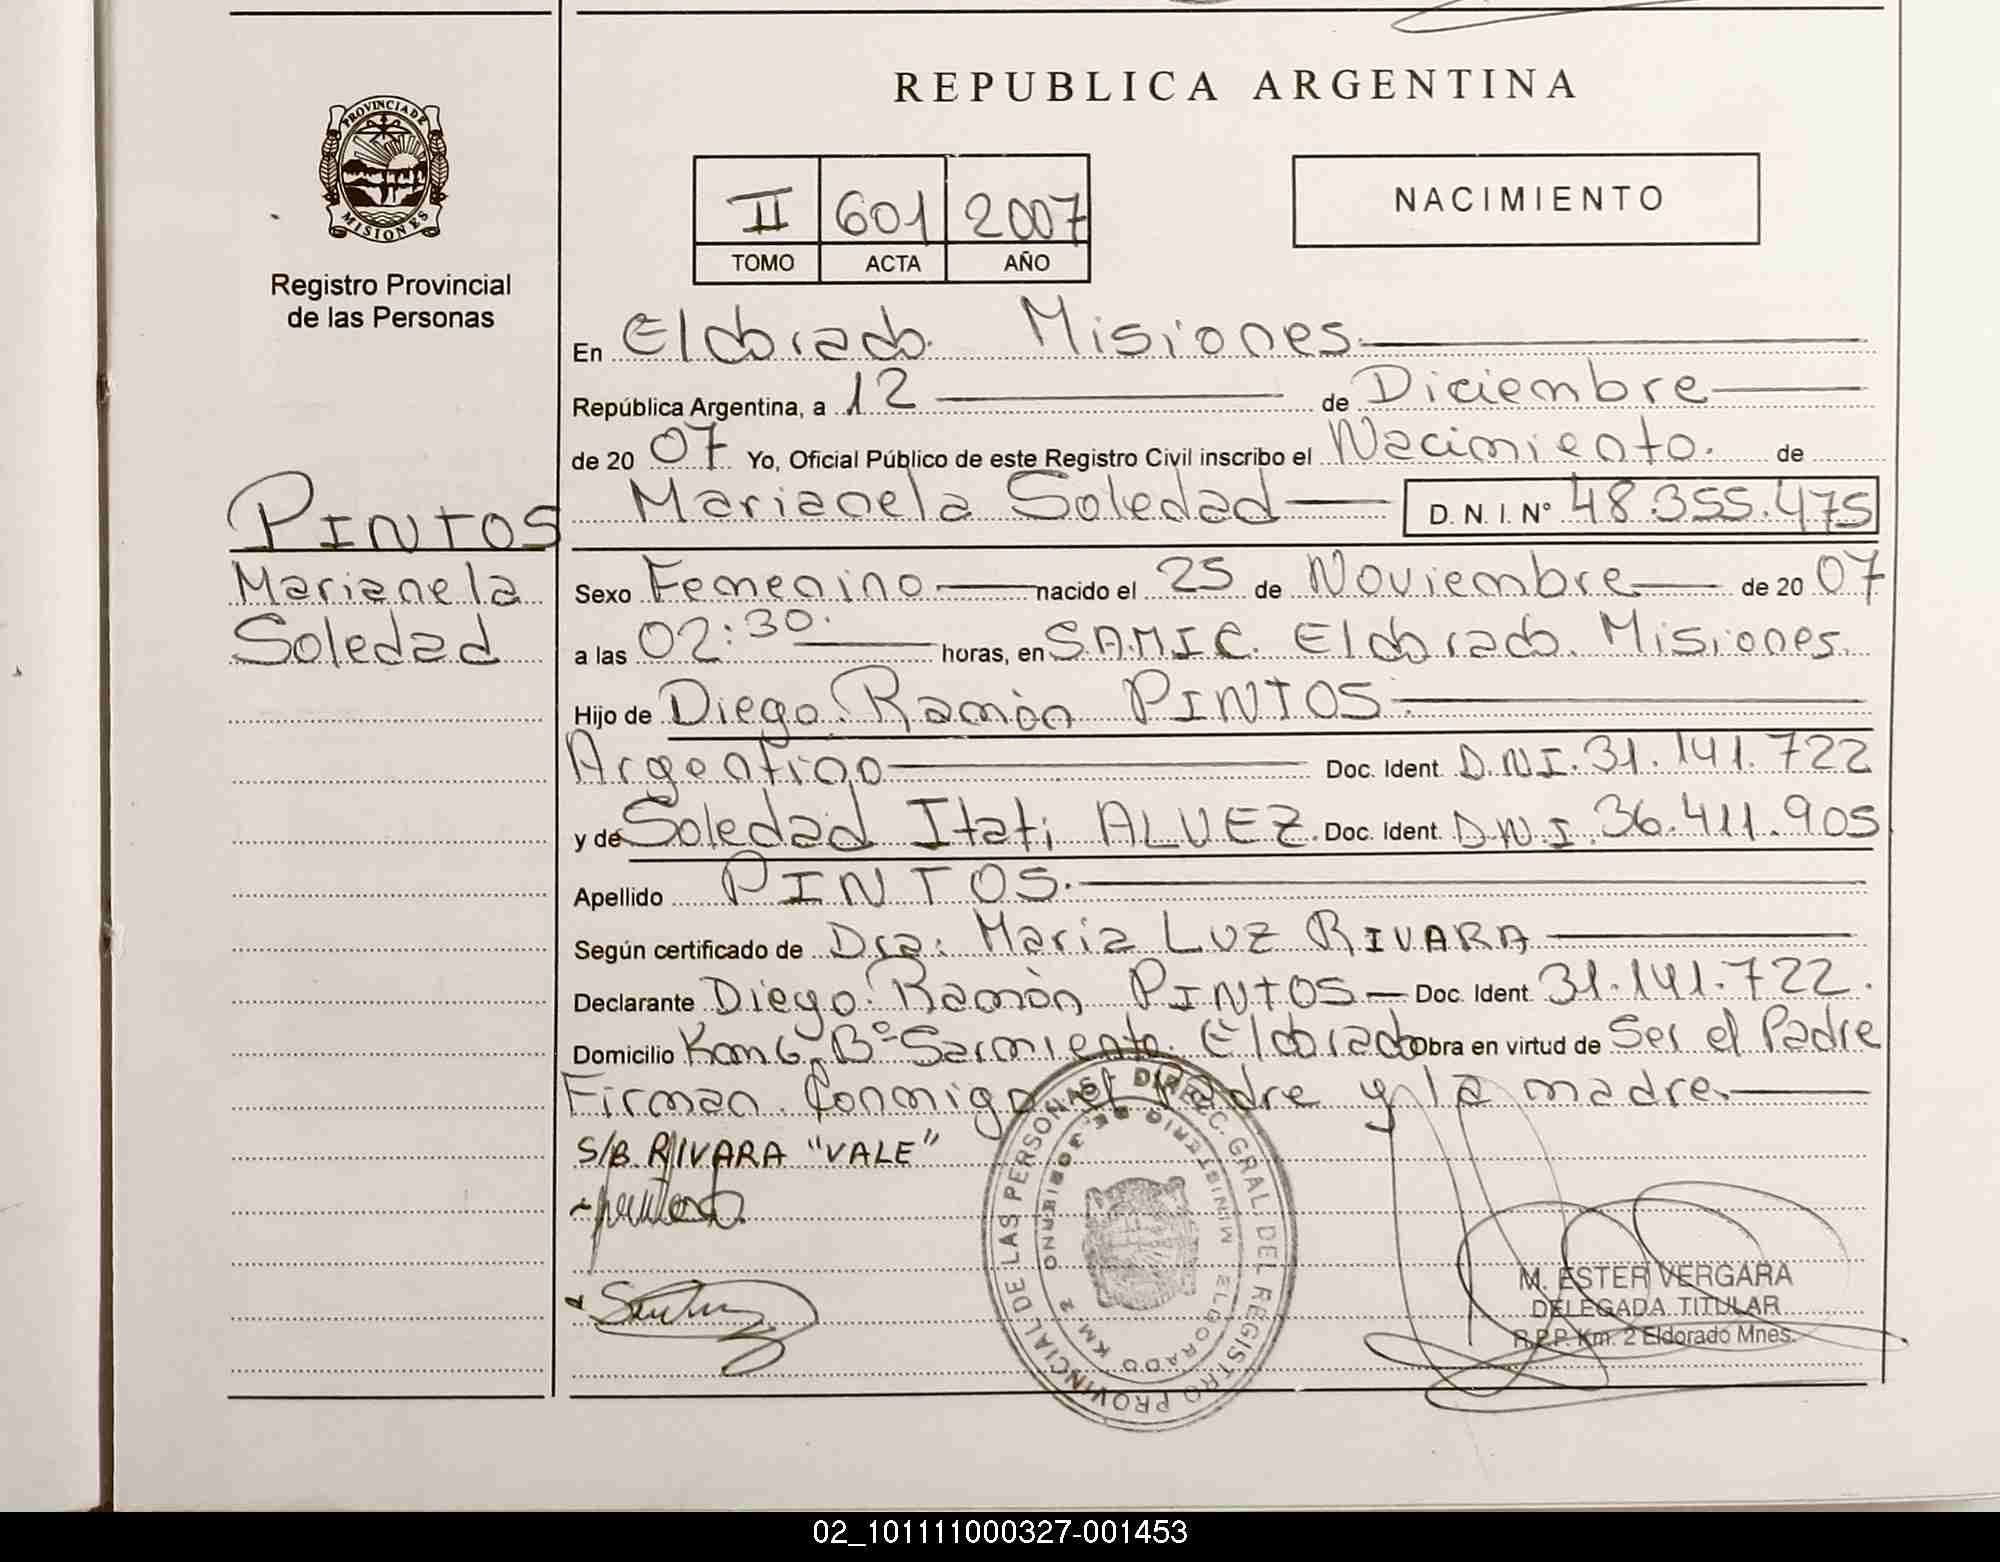 REPUBLICA ARGENTINA
PROVINCIA DE
MISIONES
Registro Provincial
de las Personas
II 601 2007
TOMO ACTA AÑO
NACIMIENTO
En Eldorado. Misiones
República Argentina, a 12 de Diciembre
de 20 07 Yo, Oficial Público de este Registro Civil inscribo el Nacimiento. de
PINTOS
Marianela
Soledad
Marianela Soledad D. N. I. Nº 48.355.475
Sexo Femenino nacido el 25 de Noviembre de 20 07
a las 02:30. horas, en S.A.M.I.C. Eldorado. Misiones.
Hijo de Diego Ramòn PINTOS.
Argentino Doc. Ident. D.N.I. 31.141.722
y de Soledad Itati ALVEZ. Doc. Ident. D.N.I. 36.411.905
Apellido PINTOS.
Según certificado de Dra: Maria Luz RIVARA
Declarante Diego Ramòn PINTOS Doc. Ident. 31.141.722.
Domicilio Km 6 Bº Sarmiento. Eldorado Obra en virtud de Ser el Padre
Firman Conmigo el Padre y la madre.
S/B. RIVARA "VALE"
DIREC. GRAL DEL REGISTRO PROVINCIAL DE LAS PERSONAS
MINISTERIO DE GOBIERNO
ELDORADO KM 2
M. ESTER VERGARA
DELEGADA TITULAR
R.P.P. Km. 2 Eldorado Mnes.
02_101111000327-001453